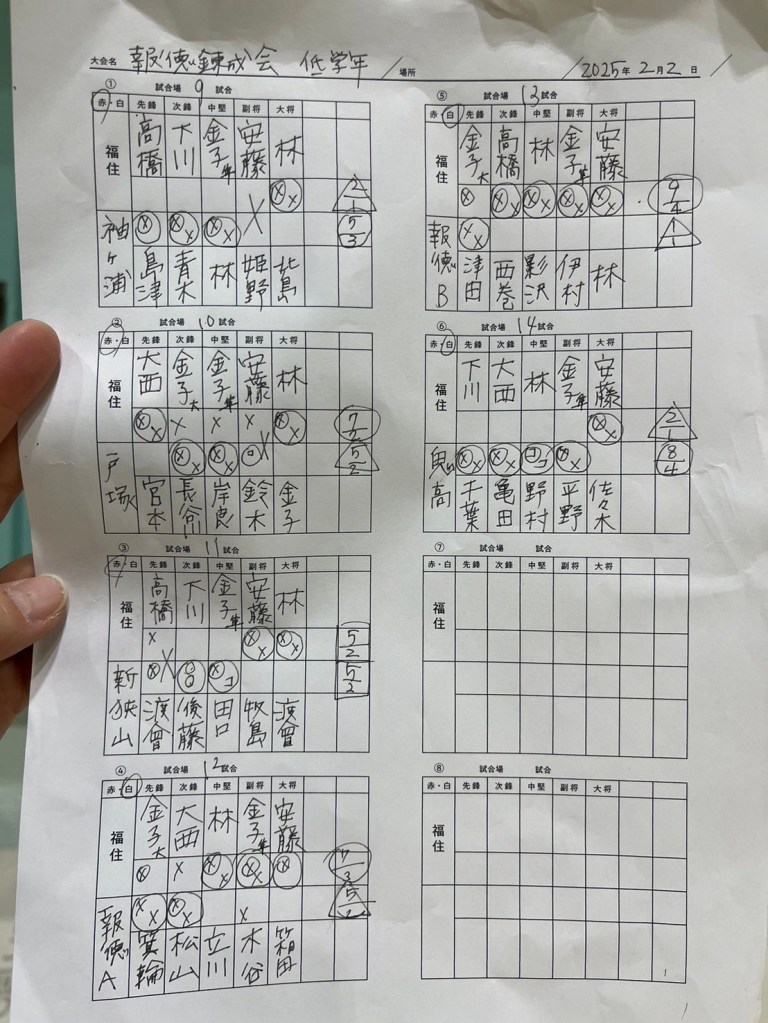 大会名 報徳錬成会 低学年 / 場所 / 2025年 2月2日 /
① 試合場 9 試合
赤・白 先鋒 次鋒 中堅 副将 大将
福住 高橋 下川 金子隼 安藤 林
× ×× 2/1
袖ヶ浦 ×× ×× ×× 5/3
島津 青木 林 姫野 北島
② 試合場 10 試合
赤・白 先鋒 次鋒 中堅 副将 大将
福住 大西 金子大 金子隼 安藤 林
×× × × × ×× 7/2
戸塚 ×× ×× コ× 5/2
宮本 長谷川 岸恵 鈴木 金子
③ 試合場 11 試合
赤・白 先鋒 次鋒 中堅 副将 大将
福住 高橋 下川 金子隼 安藤 林
× ×× ×× 5/2
新狭山 × ×コ 5/2
渡會 後藤 田口 牧島 渡會
④ 試合場 12 試合
赤・白 先鋒 次鋒 中堅 副将 大将
福住 金子大 大西 林 金子隼 安藤
× × ×× ×× × 7/3
報徳A ×× ×× × 5/2
箕輪 松山 立川 木谷 箱田
⑤ 試合場 13 試合
赤・白 先鋒 次鋒 中堅 副将 大将
福住 金子大 高橋 林 金子隼 安藤
× ×× ×× ×× ×× 9/4
報徳B ×× 1/1
津田 西巻 影沢 伊村 林
⑥ 試合場 14 試合
赤・白 先鋒 次鋒 中堅 副将 大将
福住 下川 大西 林 金子隼 安藤
×× 2/1
鬼高 ×× ×× ココ ×× 8/4
千葉 亀田 野村 平野 佐々木
⑦ 試合場 試合
赤・白 先鋒 次鋒 中堅 副将 大将
福住
⑧ 試合場 試合
赤・白 先鋒 次鋒 中堅 副将 大将
福住
1